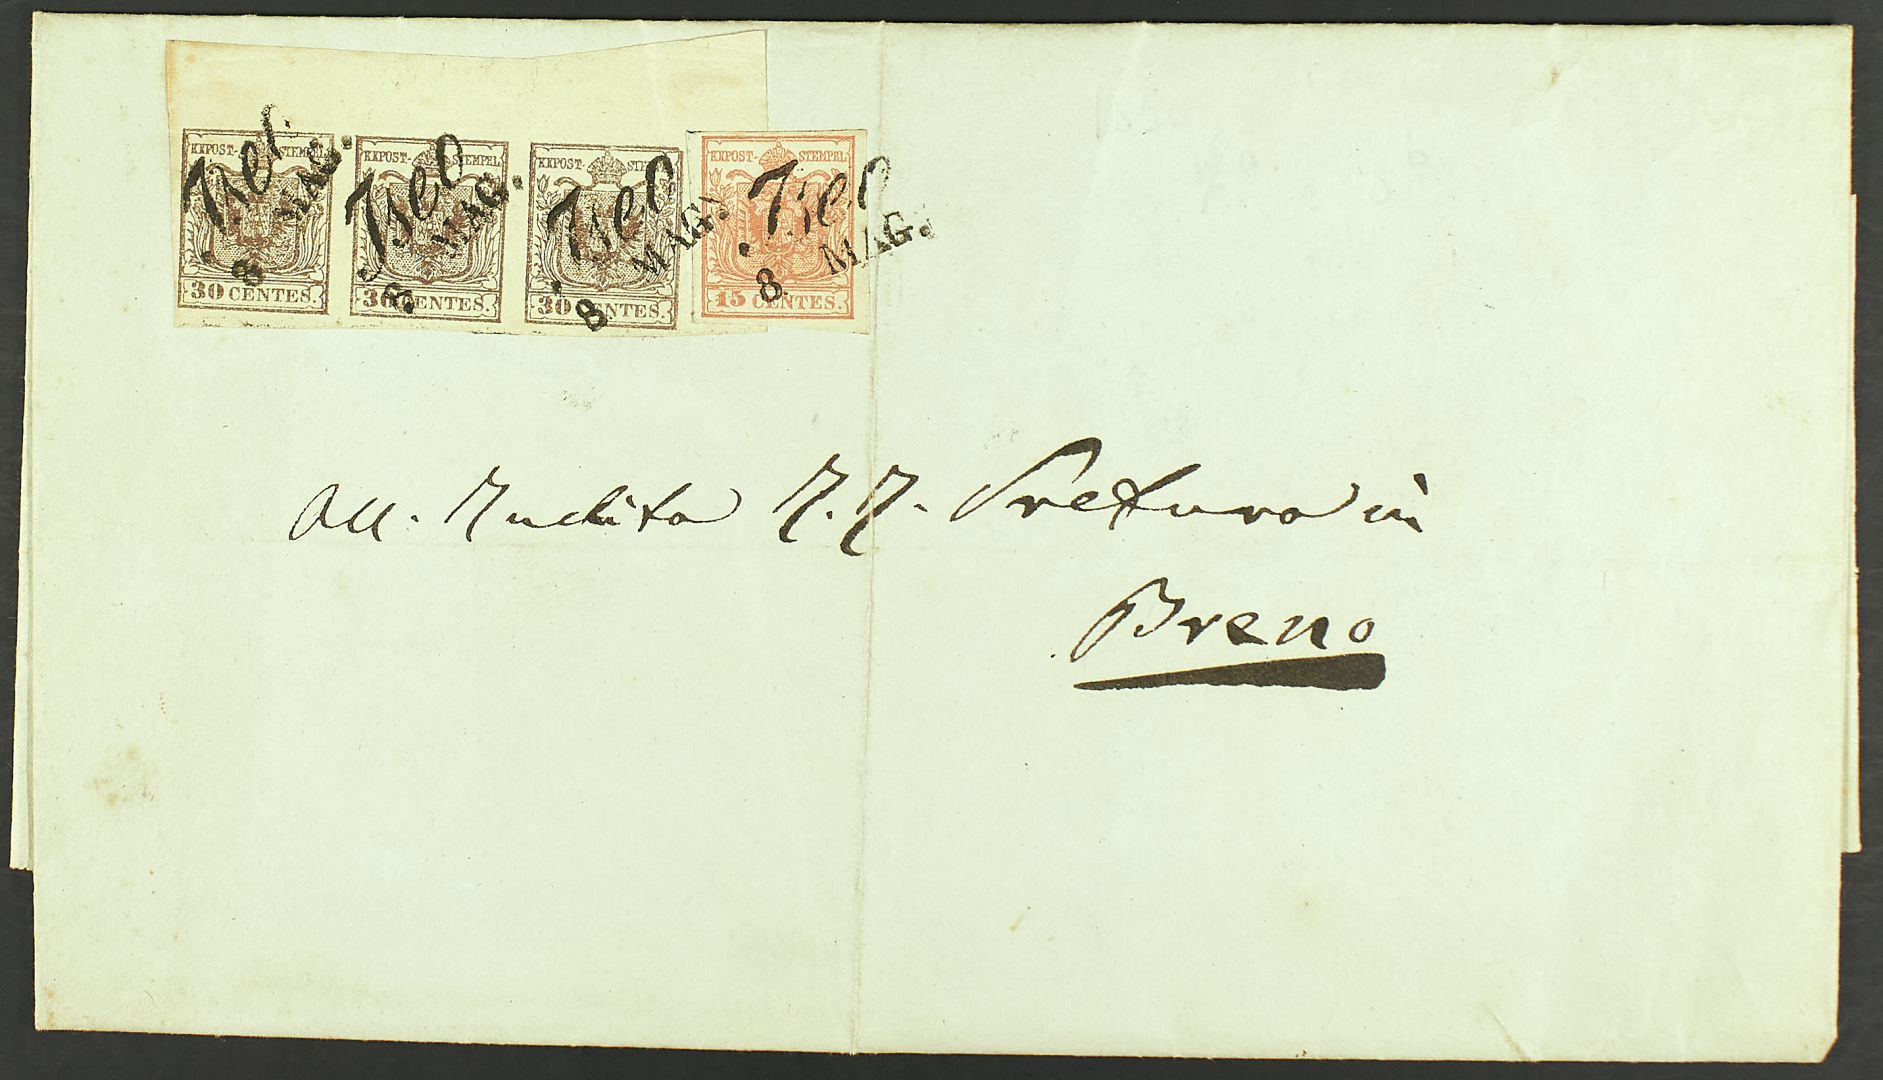 KKPOST-STEMPEL KKPOST-STEMPEL KKPOST-STEMPEL KKPOST-STEMPEL
Iseo Iseo Iseo Iseo
8 MAG. 8 MAG. 8 MAG. 8 MAG.
30 CENTES. 30 CENTES. 30 CENTES. 15 CENTES.
All. Inclita I. R. Pretura in
Breno